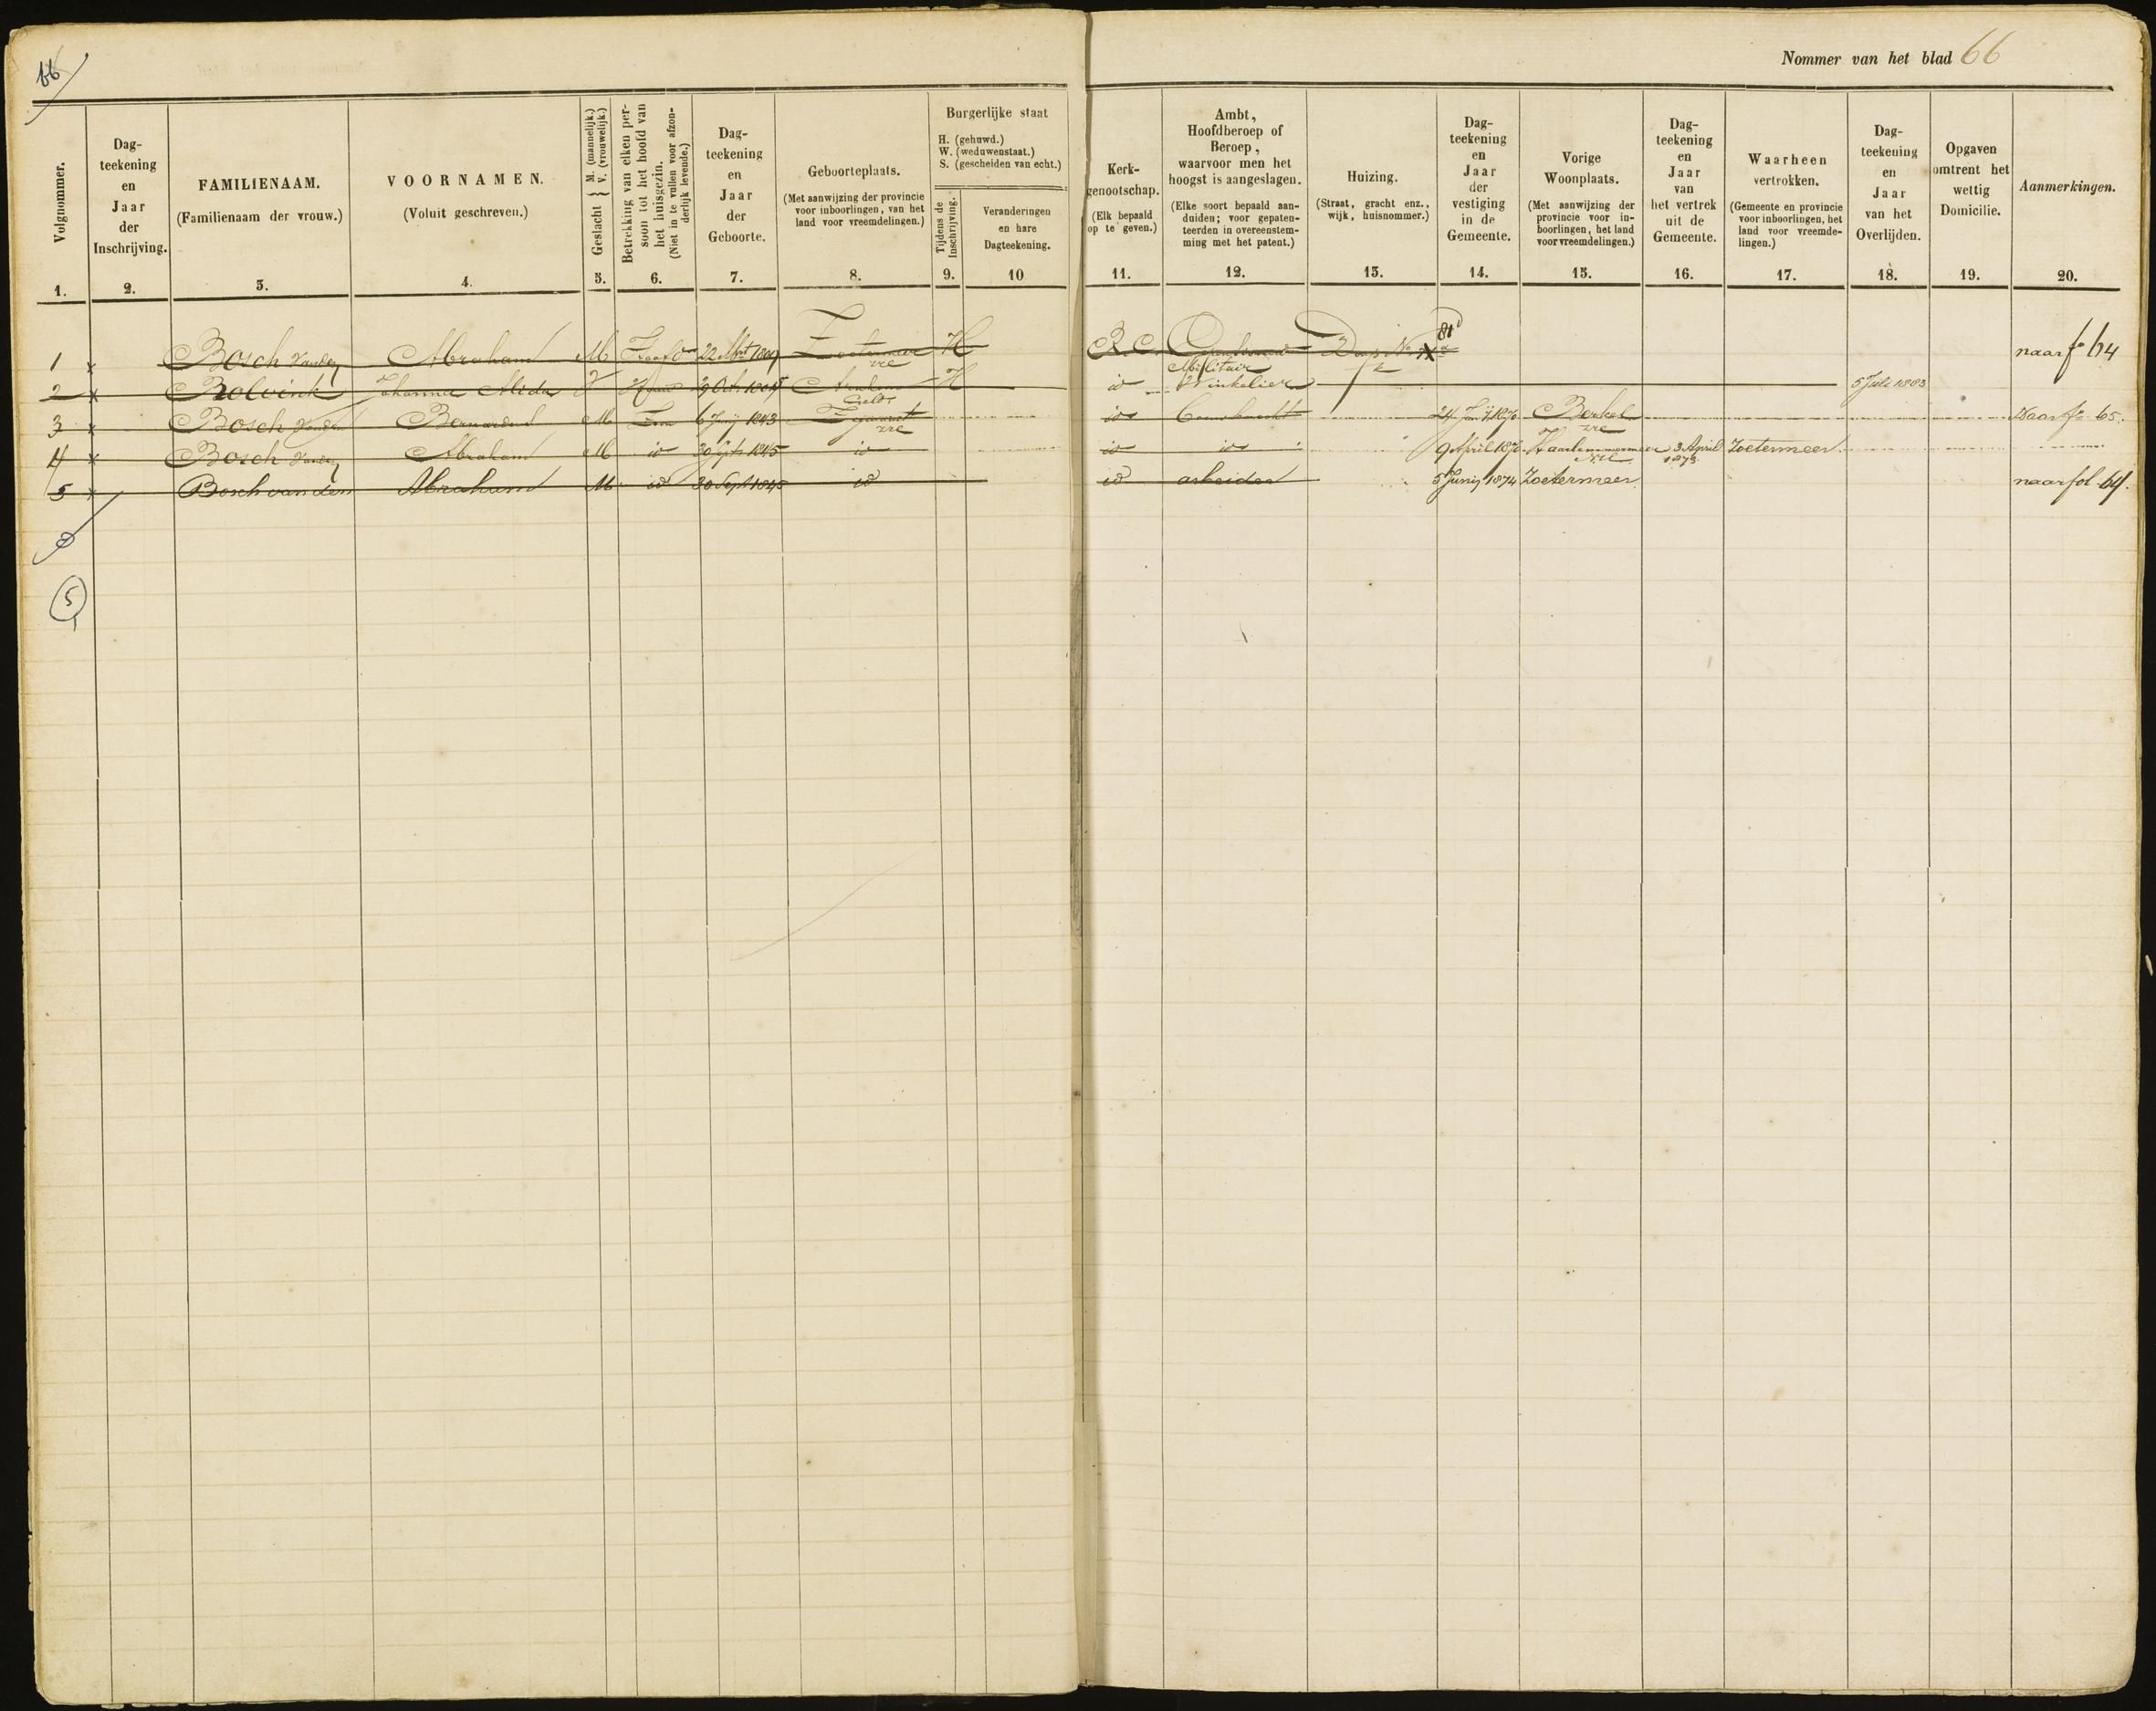 66
Nommer van het blad 66
Volgnommer.
1.
Dag-
teekening
en
Jaar
der
Inschrijving.
2.
FAMILIENAAM.
(Familienaam der vrouw.)
3.
VOORNAMEN.
(Voluit geschreven.)
4.
Geslacht { M. (mannelijk.)
V. (vrouwelijk.)
5.
Betrekking van elken per-
soon tot het hoofd van
het huisgezin.
(Niet in te vullen voor afzon-
derlijk levende.)
6.
Dag-
teekening
en
Jaar
der
Geboorte.
7.
Geboorteplaats.
(Met aanwijzing der provincie
voor inboorlingen, van het
land voor vreemdelingen.)
8.
Burgerlijke staat
H. (gehuwd.)
W. (weduwenstaat.)
S. (gescheiden van echt.)
Tijdens de
Inschrijving.
9.
Veranderingen
en hare
Dagteekening.
10
Kerk-
genootschap.
(Elk bepaald
op te geven.)
11.
Ambt,
Hoofdberoep of
Beroep,
waarvoor men het
hoogst is aangeslagen.
(Elke soort bepaald aan-
duiden; voor gepaten-
teerden in overeenstem-
ming met het patent.)
12.
Huizing.
(Straat, gracht enz.,
wijk, huisnommer.)
13.
Dag-
teekening
en
Jaar
der
vestiging
in de
Gemeente.
14.
Vorige
Woonplaats.
(Met aanwijzing der
provincie voor in-
boorlingen, het land
voor vreemdelingen.)
15.
Dag-
teekening
en
Jaar
van
het vertrek
uit de
Gemeente.
16.
Waarheen
vertrokken.
(Gemeente en provincie
voor inboorlingen, het
land voor vreemde-
lingen.)
17.
Dag-
teekening
en
Jaar
van het
Overlijden.
18.
Opgaven
omtrent het
wettig
Domicilie.
19.
Aanmerkingen.
20.
1 x Bosch Vanden Abraham M Hoofd 22 Zoetermeer H R.C. Dorp No 81d naar fo 64
zre
Militair
2 x Rolvink Johanna Alida V 29 Oct Arnhem H id Winkelier 5 Juli 1883
Geld
3 x Bosch Vanden Bernardus M Zoon 6 Junij 1843 Zegwaart id 24 1870 Berkel Naar fo 65.
zre zre
4 x Bosch Vanden Abraham M id 30 Sept 1845 id id id 9 April 187 Haarlemmermeer 3 April 1873 Zoetermeer
5 x Bosch van den Abraham M id 30 Sept 1845 id id arbeider 5 Junij 1874 Zoetermeer naar fol 64.
5